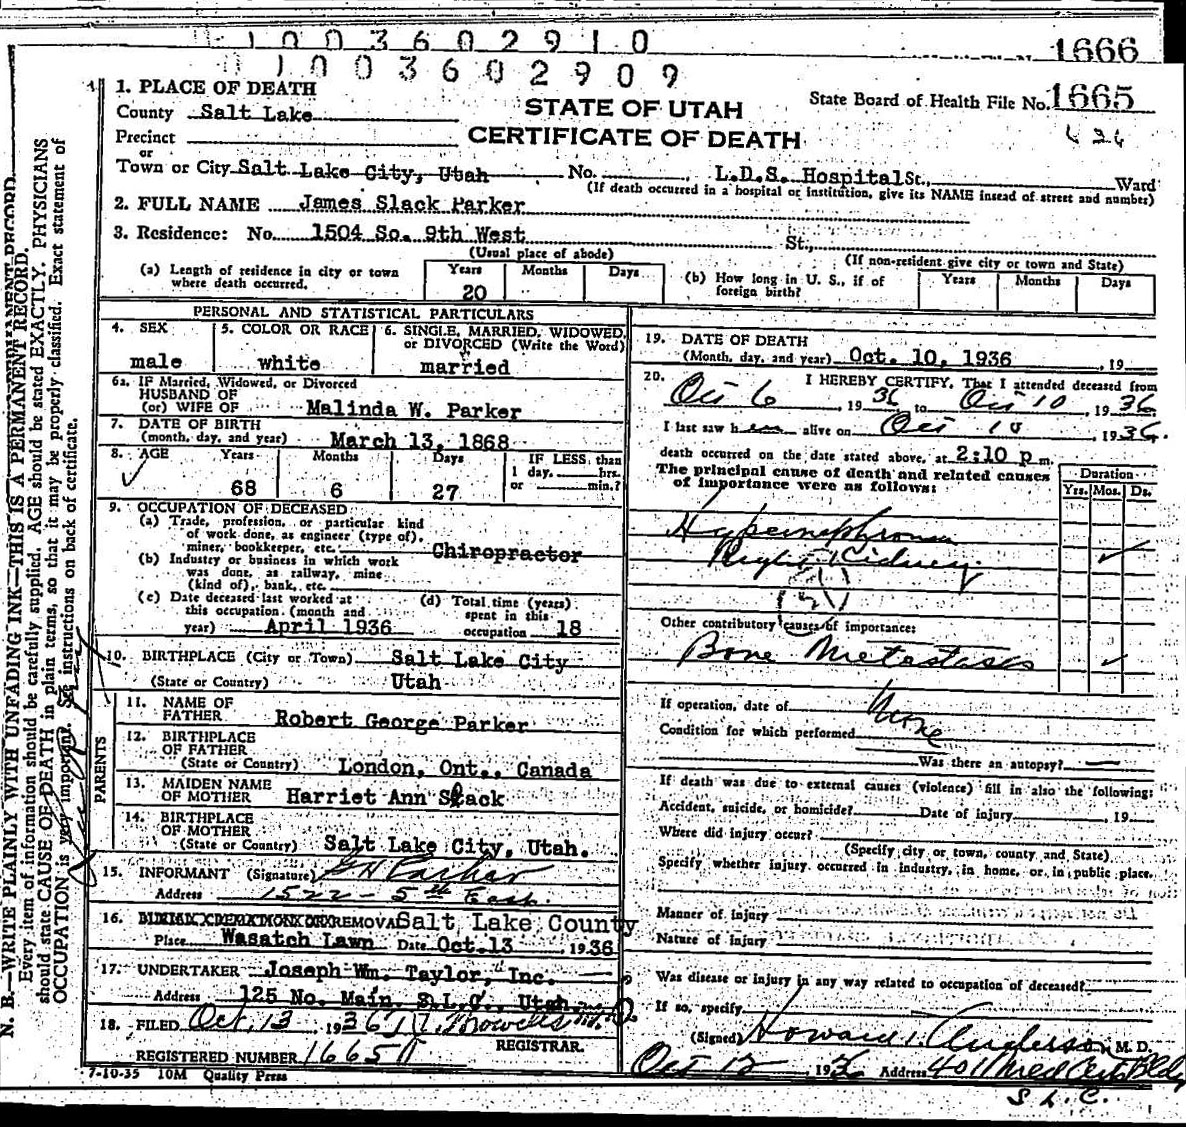 1003602910
1666
1003602909
1. PLACE OF DEATH
STATE OF UTAH
State Board of Health File No. 1665
County Salt Lake
CERTIFICATE OF DEATH
Precinct
or
Town or City Salt Lake City, Utah No. L.D.S. Hospital St., Ward
(If death occurred in a hospital or institution, give its NAME insead of street and number)
2. FULL NAME James Slack Parker
3. Residence: No. 1504 So. 9th West St.,
(Usual place of abode) (If non-resident give city or town and State)
(a) Length of residence in city or town where death occurred. Years 20 Months Days
(b) How long in U. S., if of foreign birth? Years Months Days
PERSONAL AND STATISTICAL PARTICULARS
4. SEX 5. COLOR OR RACE 6. SINGLE, MARRIED, WIDOWED, or DIVORCED (Write the Word)
male white married
6a. IF Married, Widowed, or Divorced
HUSBAND OF
(or) WIFE OF Malinda W. Parker
7. DATE OF BIRTH
(month, day, and year) March 13, 1868
8. AGE Years Months Days IF LESS than
1 day, hrs.
or min.?
68 6 27
9. OCCUPATION OF DECEASED
(a) Trade, profession, or particular kind
of work done, as engineer (type of),
miner, bookkeeper, etc. Chiropractor
(b) Industry or business in which work
was done, as railway, mine
(kind of), bank, etc.
(c) Date deceased last worked at
this occupation (month and
year) April 1936
(d) Total time (years)
spent in this
occupation 18
10. BIRTHPLACE (City or Town) Salt Lake City
(State or Country) Utah
PARENTS
11. NAME OF
FATHER Robert George Parker
12. BIRTHPLACE
OF FATHER
(State or Country) London, Ont., Canada
13. MAIDEN NAME
OF MOTHER Harriet Ann Slack
14. BIRTHPLACE
OF MOTHER
(State or Country) Salt Lake City, Utah.
15. INFORMANT (Signature) Parker
Address 1522 - 5th East
16. BURIAL, CREMATION OR REMOVAL Salt Lake County
Place Wasatch Lawn Date Oct. 13 1936
17. UNDERTAKER Joseph Wm. Taylor, Inc.
Address 125 No. Main. S.L.C., Utah.
18. FILED Oct, 13, 1936
REGISTRAR.
REGISTERED NUMBER 1665
7-10-35 10M Quality Press
19. DATE OF DEATH
(Month, day, and year) Oct. 10, 1936, 19
20. I HEREBY CERTIFY, That I attended deceased from
Oct 6, 1936 to Oct 10, 1936
I last saw him alive on Oct 10, 1936.
death occurred on the date stated above, at 2:10 p m.
The principal cause of death and related causes
of importance were as follows:
Duration
Yrs. Mos. Ds.
Hypernephroma
Right Kidney
Other contributory causes of importance:
Bone Metastases
If operation, date of None
Condition for which performed
Was there an autopsy?
If death was due to external causes (violence) fill in also the following:
Accident, suicide, or homicide? Date of injury, 19
Where did injury occur?
(Specify city or town, county and State)
Specify whether injury occurred in industry, in home, or in public place.
Manner of injury
Nature of injury
Was disease or injury in any way related to occupation of deceased?
If so, specify
(Signed) Howard Anderson M. D.
Oct 12 1936 Address 401 Med Arts Bldg
S. L. C.
N. B.—WRITE PLAINLY WITH UNFADING INK—THIS IS A PERMANENT RECORD.
Every item of information should be carefully supplied. AGE should be stated EXACTLY. PHYSICIANS
should state CAUSE OF DEATH in plain terms, so that it may be properly classified. Exact statement of
OCCUPATION is very important. See instructions on back of certificate.